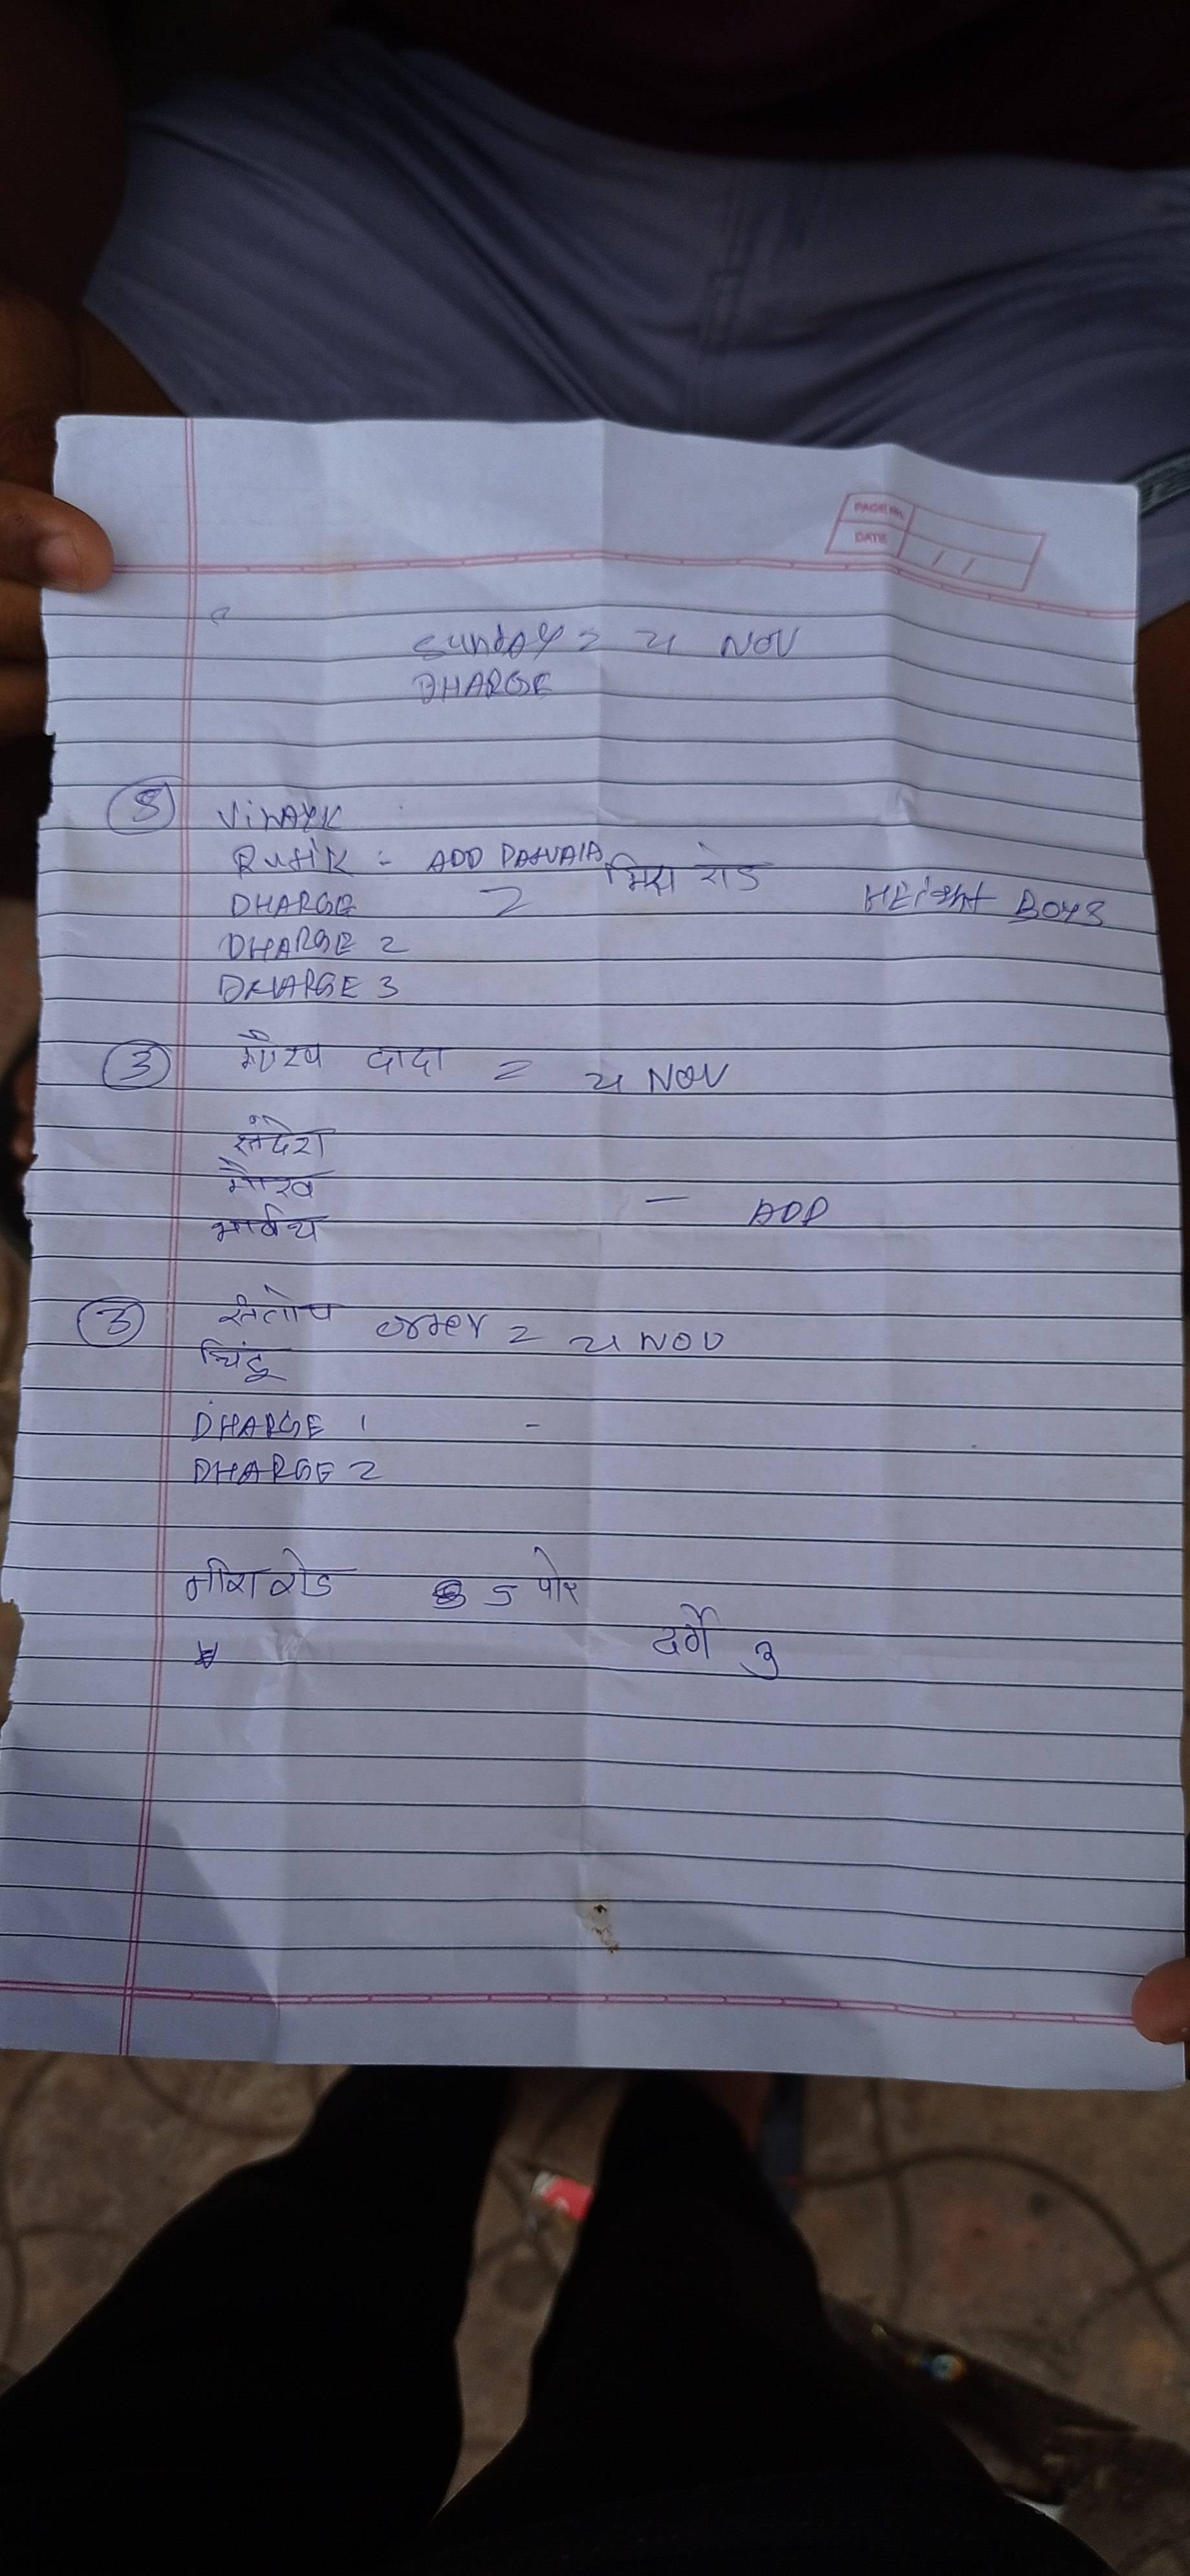 PAGE No.
DATE / /
Sunday = 24 NOV
DHARGE
5 VINAYK
RutiK - ADD
DHARGE = मिरा रोड HEight Boys
DHARGE 2
DHARGE 3
3 गौरव दादा = 24 NOV
संदेश
गौरव - ADD
3 संतोष = 24 NOV
चिंटू
DHARGE 1 -
DHARGE 2
मीरा रोड 5 पोर
दर्गे 3